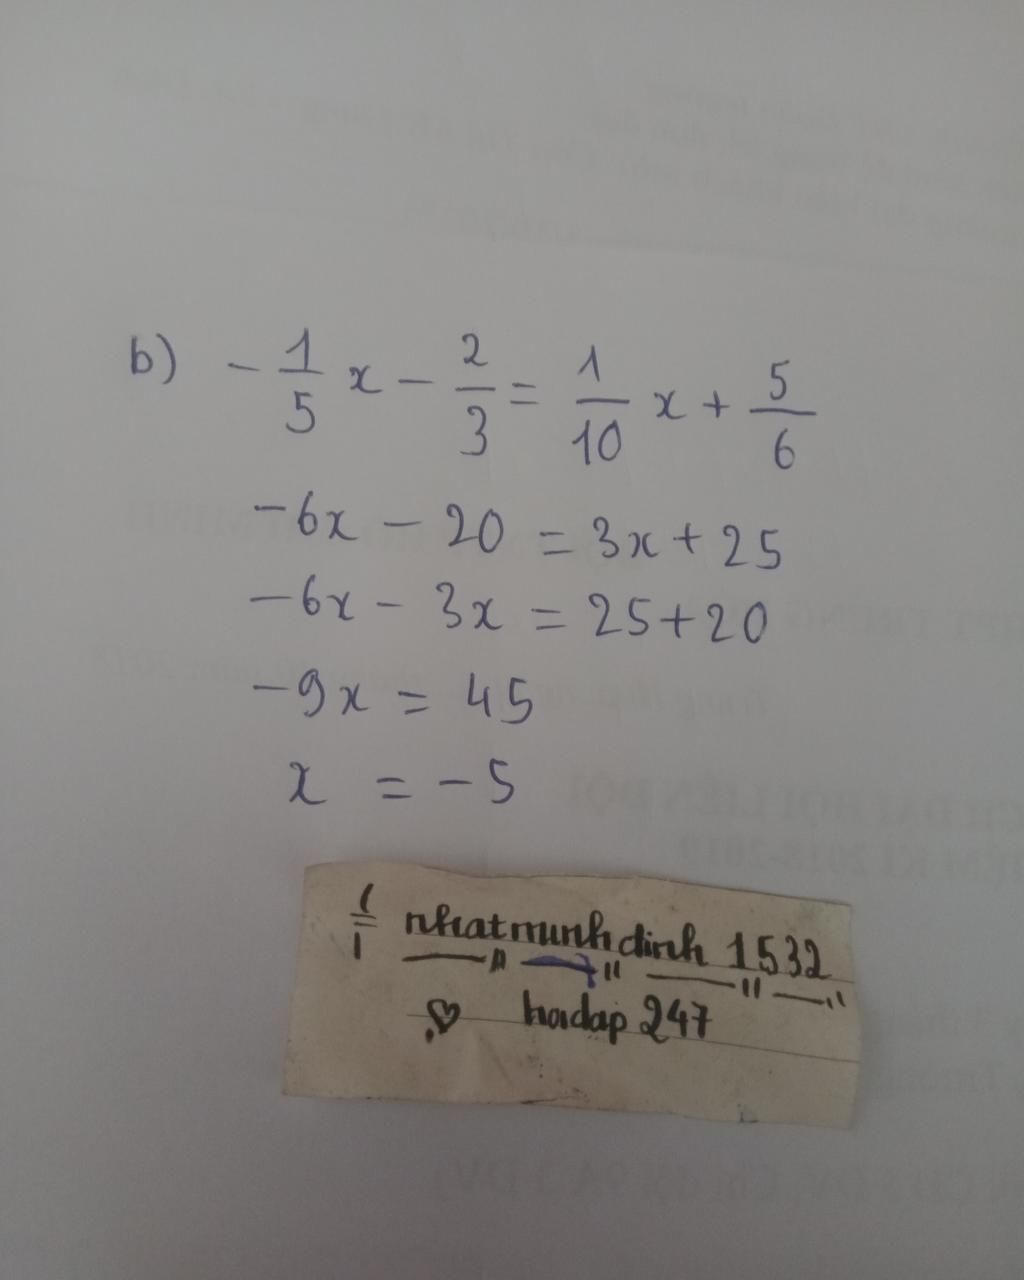 b) -1/5 x - 2/3 = 1/10 x + 5/6
-6x - 20 = 3x + 25
-6x - 3x = 25 + 20
-9x = 45
x = -5
nhatminhdinh 1532
hoidap 247